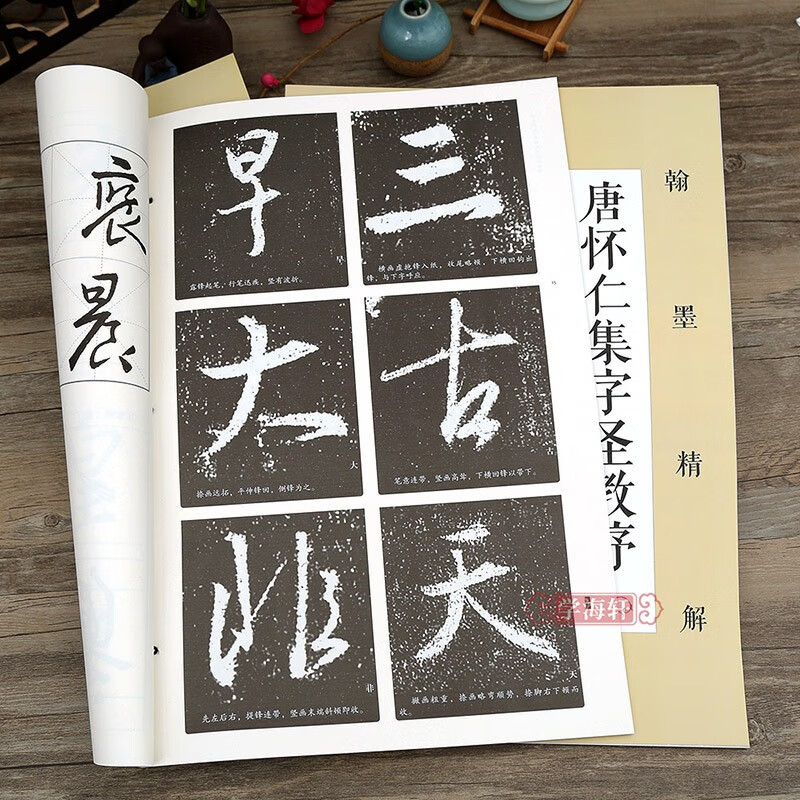 晨
早
早
露锋起笔，行笔迅疾，竖有波折。
三
横画虚抢锋入纸，收尾略顿，下横回钩出
锋，与下字呼应。
大
大
捺画远拓，平伸锋回，侧锋为之。
古
古
笔意连带，竖画高耸，下横回锋以带下。
非
非
先左后右，提锋连带，竖画末端斜顿即收。
天
天
撇画粗重，捺画略弯顺势，捺脚右下顿而
收。
唐怀仁集字圣教序
翰墨精解
学海轩